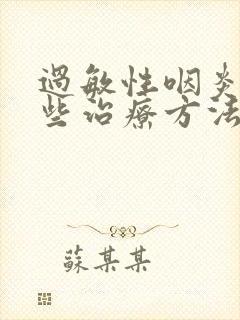 過敏性咽炎
些治療方法
蘇某某